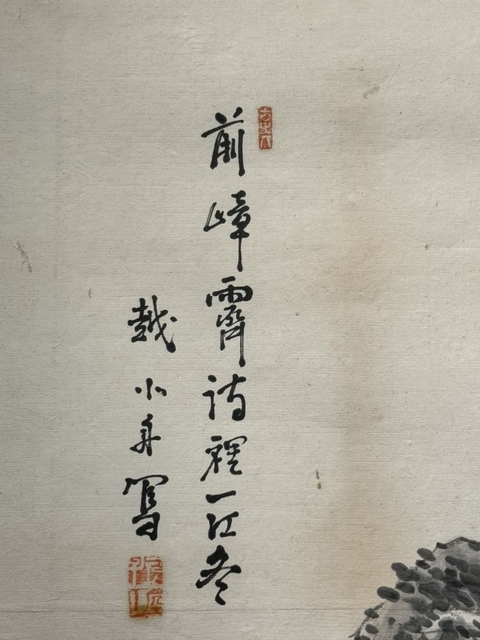 前嶂霽詩裡一江冬
越小舟寫